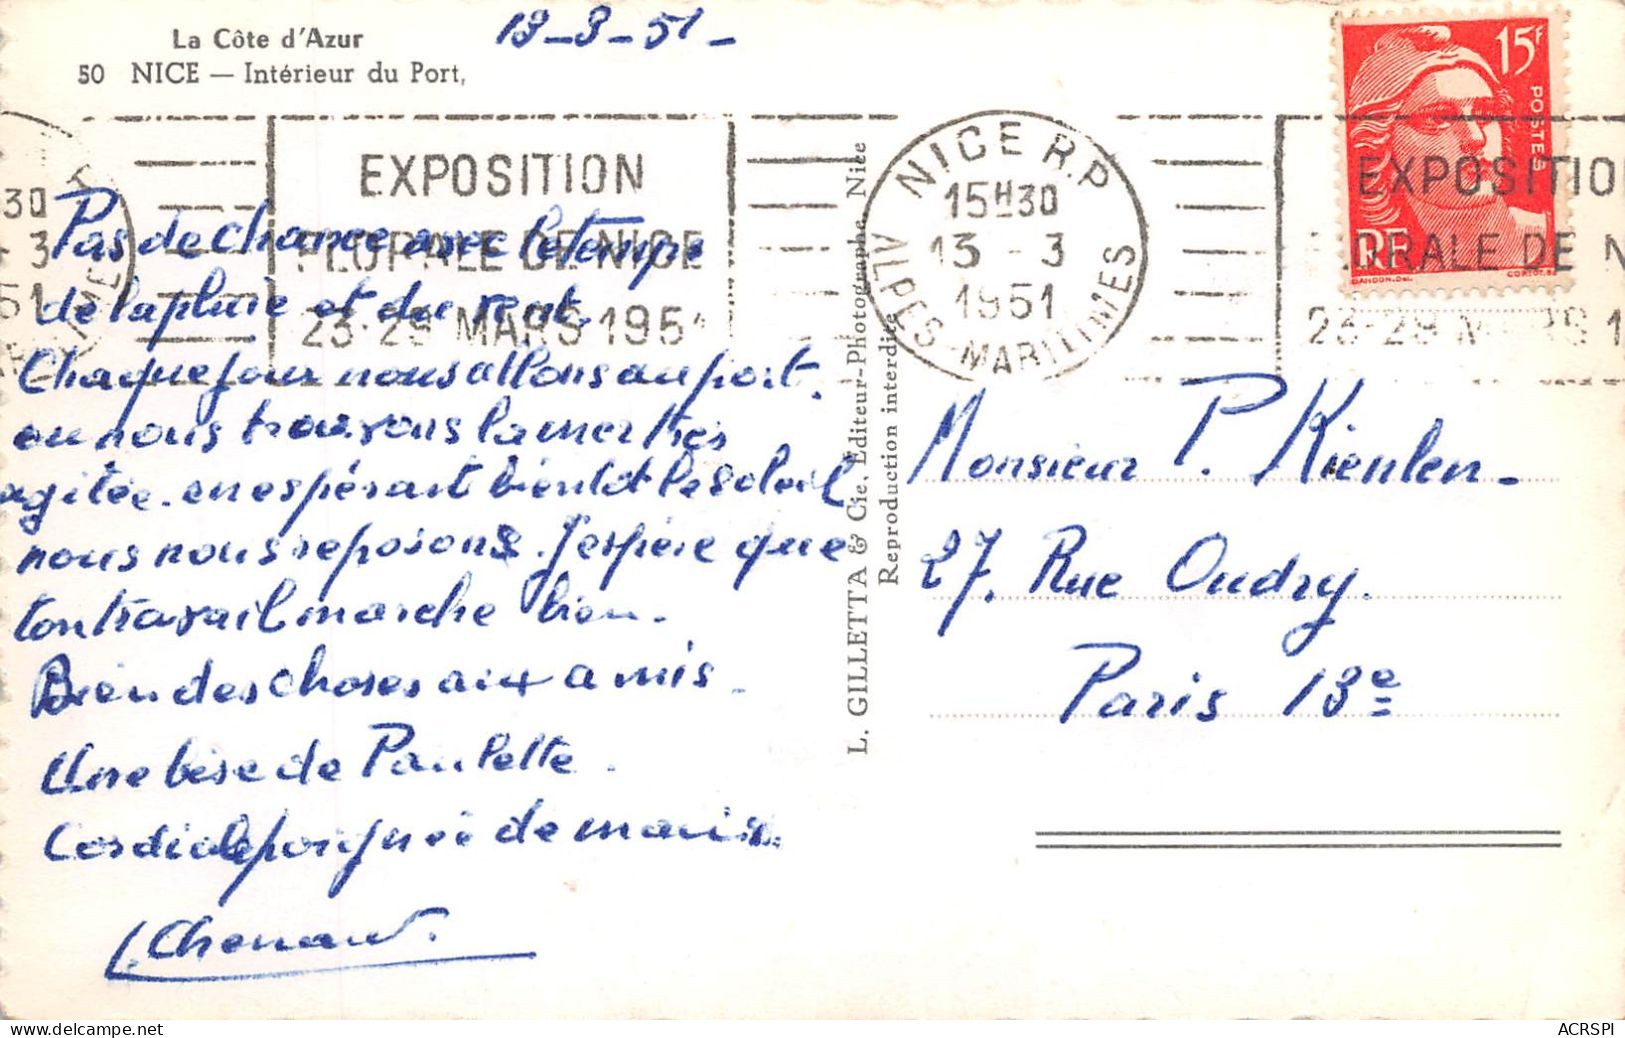 La Côte d'Azur
50 NICE — Intérieur du Port,
13-3-51-
EXPOSITION
FLORALE DE NICE
23-29 MARS 1951
Pas de chance avec le temps
de la pluie et du vent.
Chaque jour nous allons au port.
ou nous trouvons la mer très
agitée. en espérant bientot le soleil
nous nous reposons. J'espère que
ton travail marche bien.
Bien des choses aux amis.
Une bise de Paulette.
Cordiale poignée de mains.
L. Chenaut.
L. GILLETTA & Cie, Editeur-Photographe, Nice
Reproduction interdite
NICE R.P
15H30
13 - 3
1951
ALPES-MARITIMES
15F
POSTES
RF
GANDON.Del.
CORTOT.sc
EXPOSITIO
ORALE DE N
23-29 MARS 1
30
3
51
Monsieur P. Kienlen-
27, Rue Oudry.
Paris 13e
ACRSPI